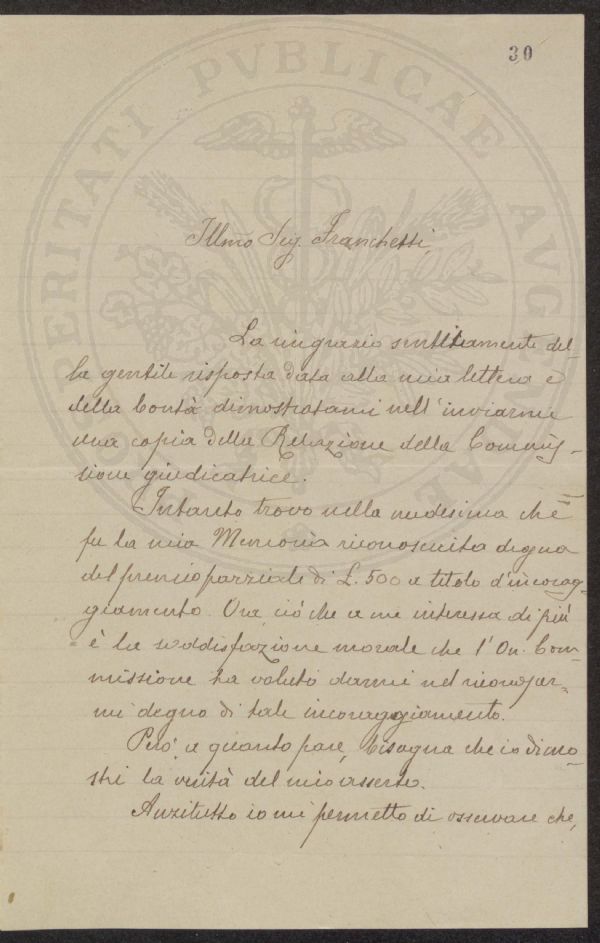 30
PROSPERITATI PVBLICAE AVGENDAE
Illmo Sig. Franchetti,
La ringrazio sentitamente del-
la gentile risposta data alla mia lettera e
della bontà dimostratami nell'inviarmi
una copia della Relazione della Commis-
sione giudicatrice.
Intanto trovo nella medesima che
fu la mia Memoria riconosciuta degna
del premio parziale di L. 500 a titolo d'incorag-
giamento. Ora, ciò che a me interessa di più
è la soddisfazione morale che l'On. Com-
missione ha voluto darmi nel riconoscer-
mi degno di tale incoraggiamento.
Però, a quanto pare, bisogna che io dimo-
stri la verità del mio asserto.
Anzitutto io mi permetto di osservare che,